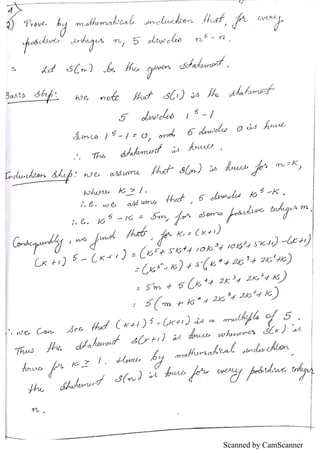 2) Prove by mathematical induction that, for every
positive integer n, 5 divides n⁵ - n.
= Let S(n) be the given statement.
Basis Step: we note that S(1) is the statement
5 divides 1⁵ - 1
Since 1⁵ - 1 = 0, and 5 divides 0 is true
∴ The statement is true.
Induction Step: we assume that S(n) is true for n=K,
where K ≥ 1.
i.e. we assume that, 5 divides K⁵ - K.
i.e. K⁵ - K = 5m, for some positive integer m.
Consequently, we find that, for K = (K+1)
(K+1)⁵ - (K+1) = (K⁵ + 5K⁴ + 10K³ + 10K² + 5K + 1) - (K+1)
= (K⁵ - K) + 5(K⁴ + 2K³ + 2K² + K)
= 5m + 5(K⁴ + 2K³ + 2K² + K)
= 5(m + K⁴ + 2K³ + 2K² + K)
∴ we can see that (K+1)⁵ - (K+1) is a multiple of 5.
Thus the statement S(K+1) is true whenever S(K) is
true for K ≥ 1. Hence by mathematical induction
the statement S(n) is true for every positive integer
n.
Scanned by CamScanner